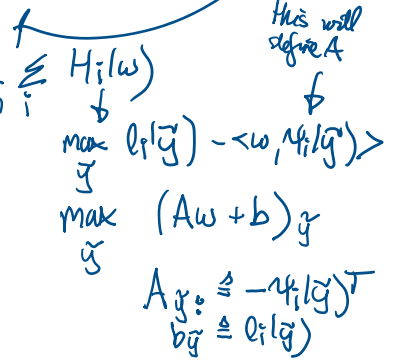 this will
define A
Σ_i H_i(ω)
max_ỹ l_i(ỹ) - <ω, ψ_i(ỹ)>
max_ỹ (Aω + b)_ỹ
A_ỹ: ≜ -ψ_i(ỹ)^T
b_ỹ ≜ l_i(ỹ)